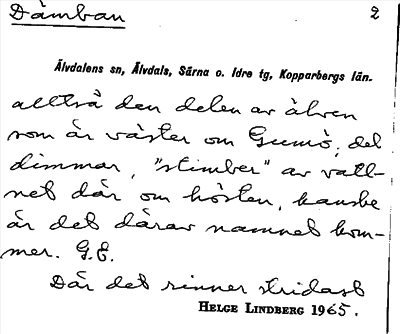 Dåmban 2
Älvdalens sn, Älvdals, Särna o. Idre tg, Kopparbergs län.
alltså den delen av älven
som är väster om Gumö; det
dimmar, "stimber" av vatt-
net där om hösten, kanske
är det därav namnet kom-
mer. G.E.
Där det rinner stridast
HELGE LINDBERG 1965.